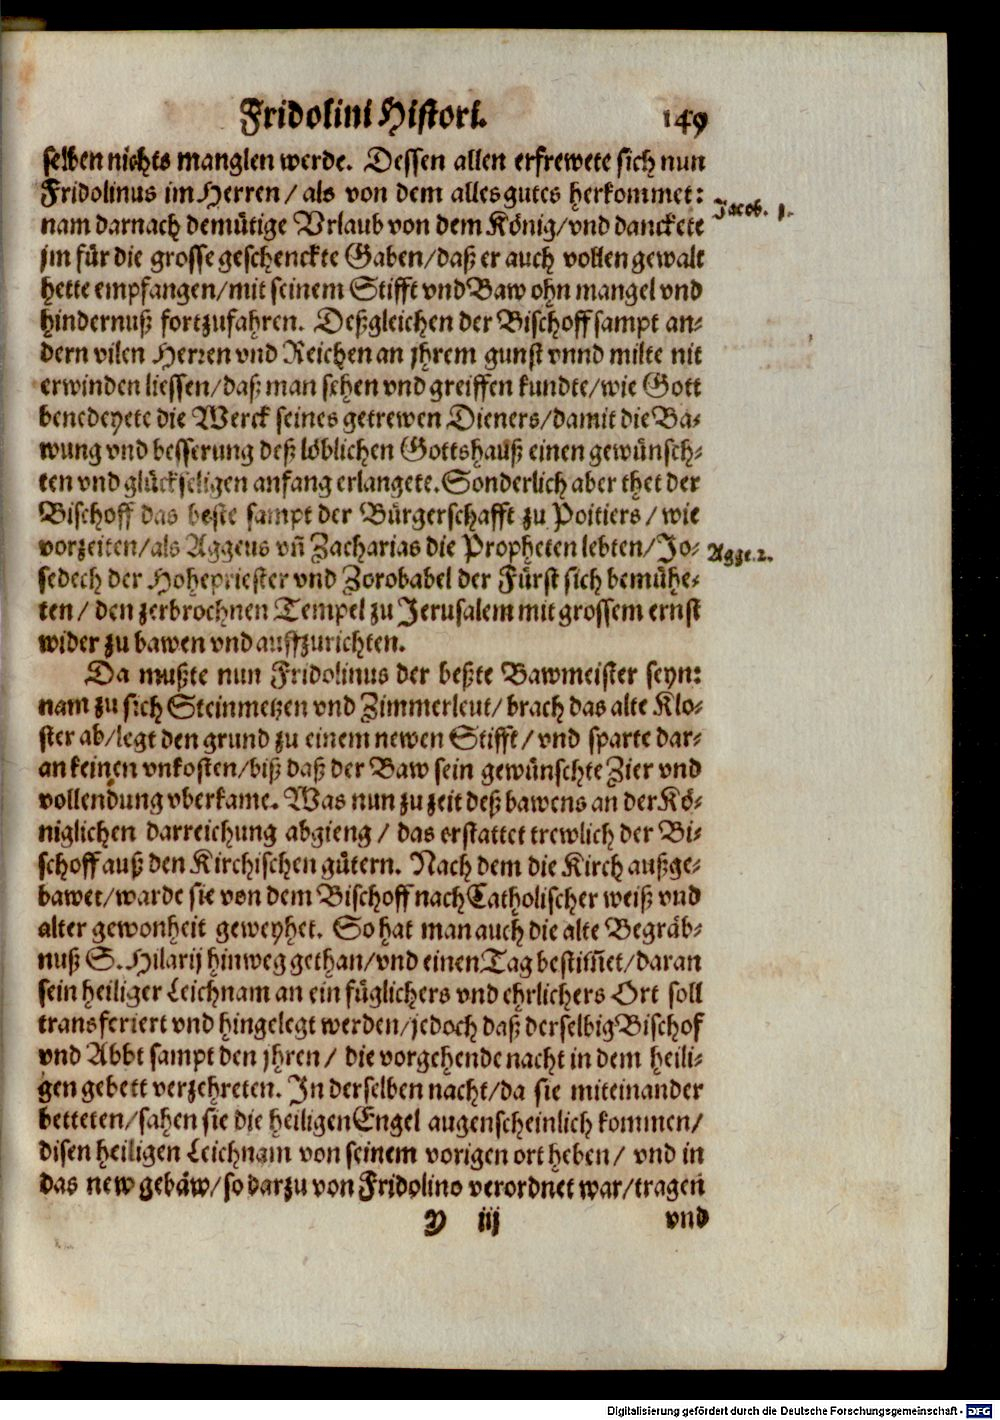 Fridolini Histori. 149
selben nichts manglen werde. Dessen allen erfrewete sich nun
Fridolinus im Herren / als von dem alles gutes herkommet:
Jacob. 1.
nam darnach demütige Vrlaub von dem König/vnd danckete
jm für die grosse geschenckte Gaben/daß er auch vollen gewalt
hette empfangen/mit seinem Stifft vnd Baw ohn mangel vnd
hindernuß fortzufahren. Deßgleichen der Bischoff sampt an-
dern vilen Herren vnd Reichen an jhrem gunst vnnd milte nit
erwinden liessen/daß man sehen vnd greiffen kundte/wie Gott
benedeyete die Werck seines getrewen Dieners/damit die Ba-
wung vnd besserung deß löblichen Gottshauß einen gewünsch-
ten vnd glückseligen anfang erlangete. Sonderlich aber thet der
Bischoff das beste sampt der Bürgerschafft zu Poitiers / wie
vorzeiten/als Aggeus vñ Zacharias die Propheten lebten/Jo-
Agge. 2.
sedech der Hohepriester vnd Zorobabel der Fürst sich bemühe-
ten / den zerbrochnen Tempel zu Jerusalem mit grossem ernst
wider zu bawen vnd auffzurichten.
Da mußte nun Fridolinus der beßte Bawmeister seyn:
nam zu sich Steinmetzen vnd Zimmerleut/ brach das alte Klo-
ster ab/legt den grund zu einem newen Stifft / vnd sparte dar-
an keinen vnkosten/biß daß der Baw sein gewünschte Zier vnd
vollendung vberkame. Was nun zu zeit deß bawens an der Kö-
niglichen darreichung abgieng / das erstattet trewlich der Bi-
schoff auß den Kirchischen gütern. Nach dem die Kirch außge-
bawet/warde sie von dem Bischoff nach Catholischer weiß vnd
alter gewonheit geweyhet. So hat man auch die alte Begräb-
nuß S. Hilarij hinweg gethan/vnd einen Tag bestim̃et/daran
sein heiliger Leichnam an ein füglichers vnd ehrlichers Ort soll
transferiert vnd hingelegt werden/jedoch daß derselbig Bischof
vnd Abbt sampt den jhren / die vorgehende nacht in dem heili-
gen gebett verzehreten. In derselben nacht/da sie miteinander
betteten/sahen sie die heiligen Engel augenscheinlich kommen/
disen heiligen Leichnam von seinem vorigen ort heben / vnd in
das new gebäw/so darzu von Fridolino verordnet war/tragen
Y iij vnd
Digitalisierung gefördert durch die Deutsche Forschungsgemeinschaft - DFG